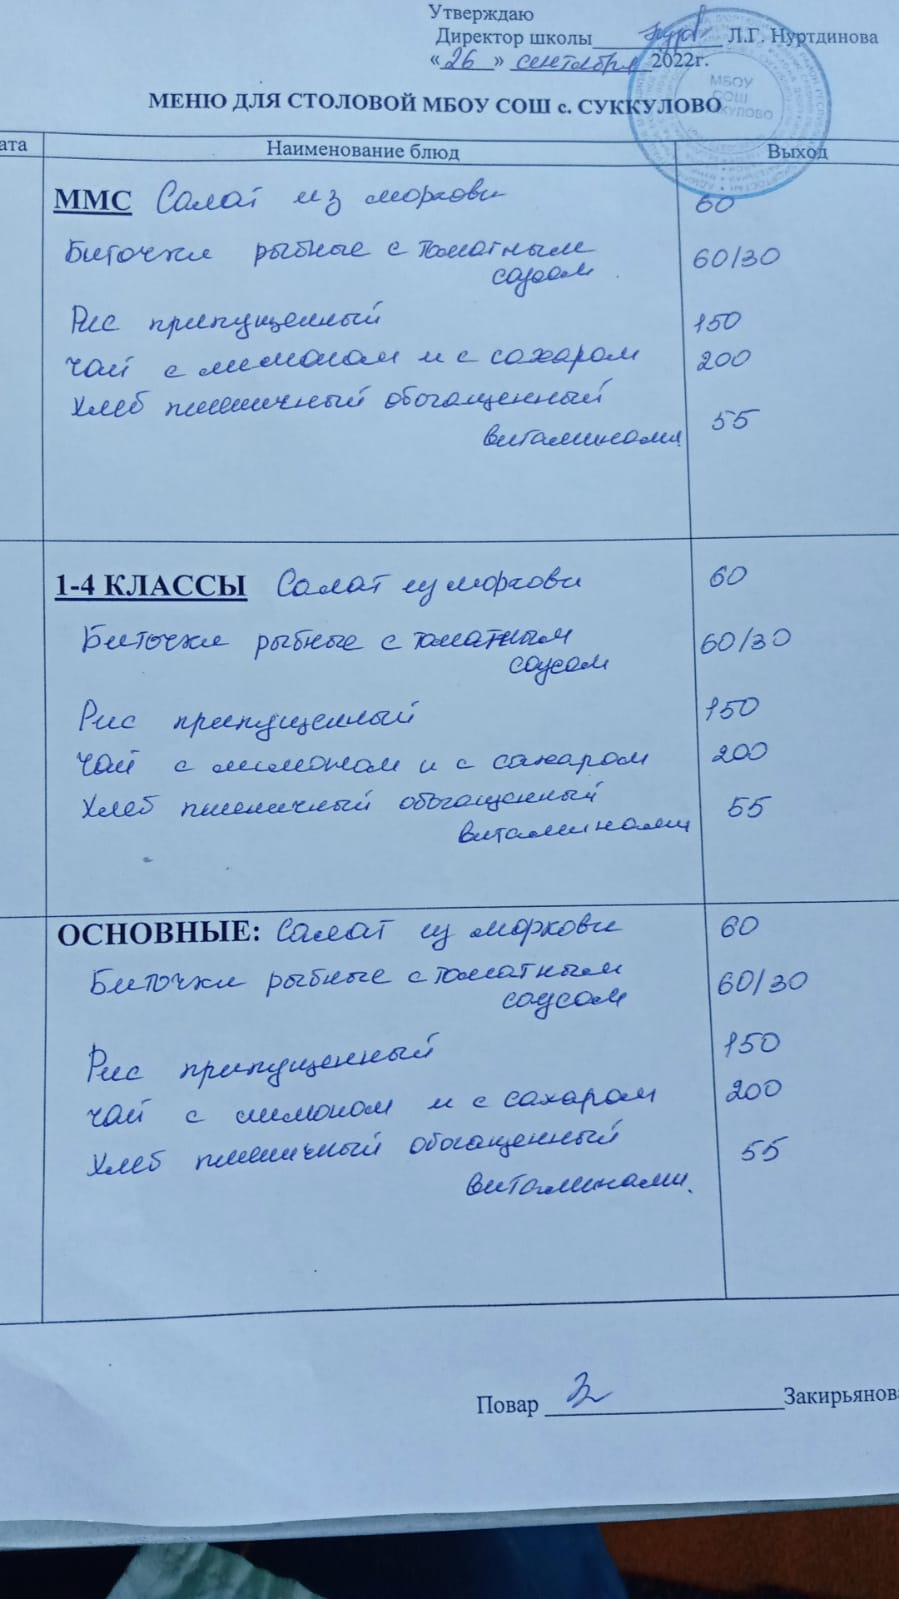 Утверждаю
Директор школы Л.Г. Нуртдинова
«26» сентября 2022г.
МЕНЮ ДЛЯ СТОЛОВОЙ МБОУ СОШ с. СУККУЛОВО
МБОУ
СОШ
ата Наименование блюд Выход
ММС Салат из моркови 60
Биточки рыбные с томатным 60/30
соусом
Рис припущенный 150
Чай с лимоном и с сахаром 200
Хлеб пшеничный обогащенный
витаминами 55
1-4 КЛАССЫ Салат из моркови 60
Биточки рыбные с томатным 60/30
соусом
Рис припущенный 150
Чай с лимоном и с сахаром 200
Хлеб пшеничный обогащенный 55
витаминами
ОСНОВНЫЕ: Салат из моркови 60
Биточки рыбные с томатным 60/30
соусом
Рис припущенный 150
Чай с лимоном и с сахаром 200
Хлеб пшеничный обогащенный 55
витаминами.
Повар Закирьянова